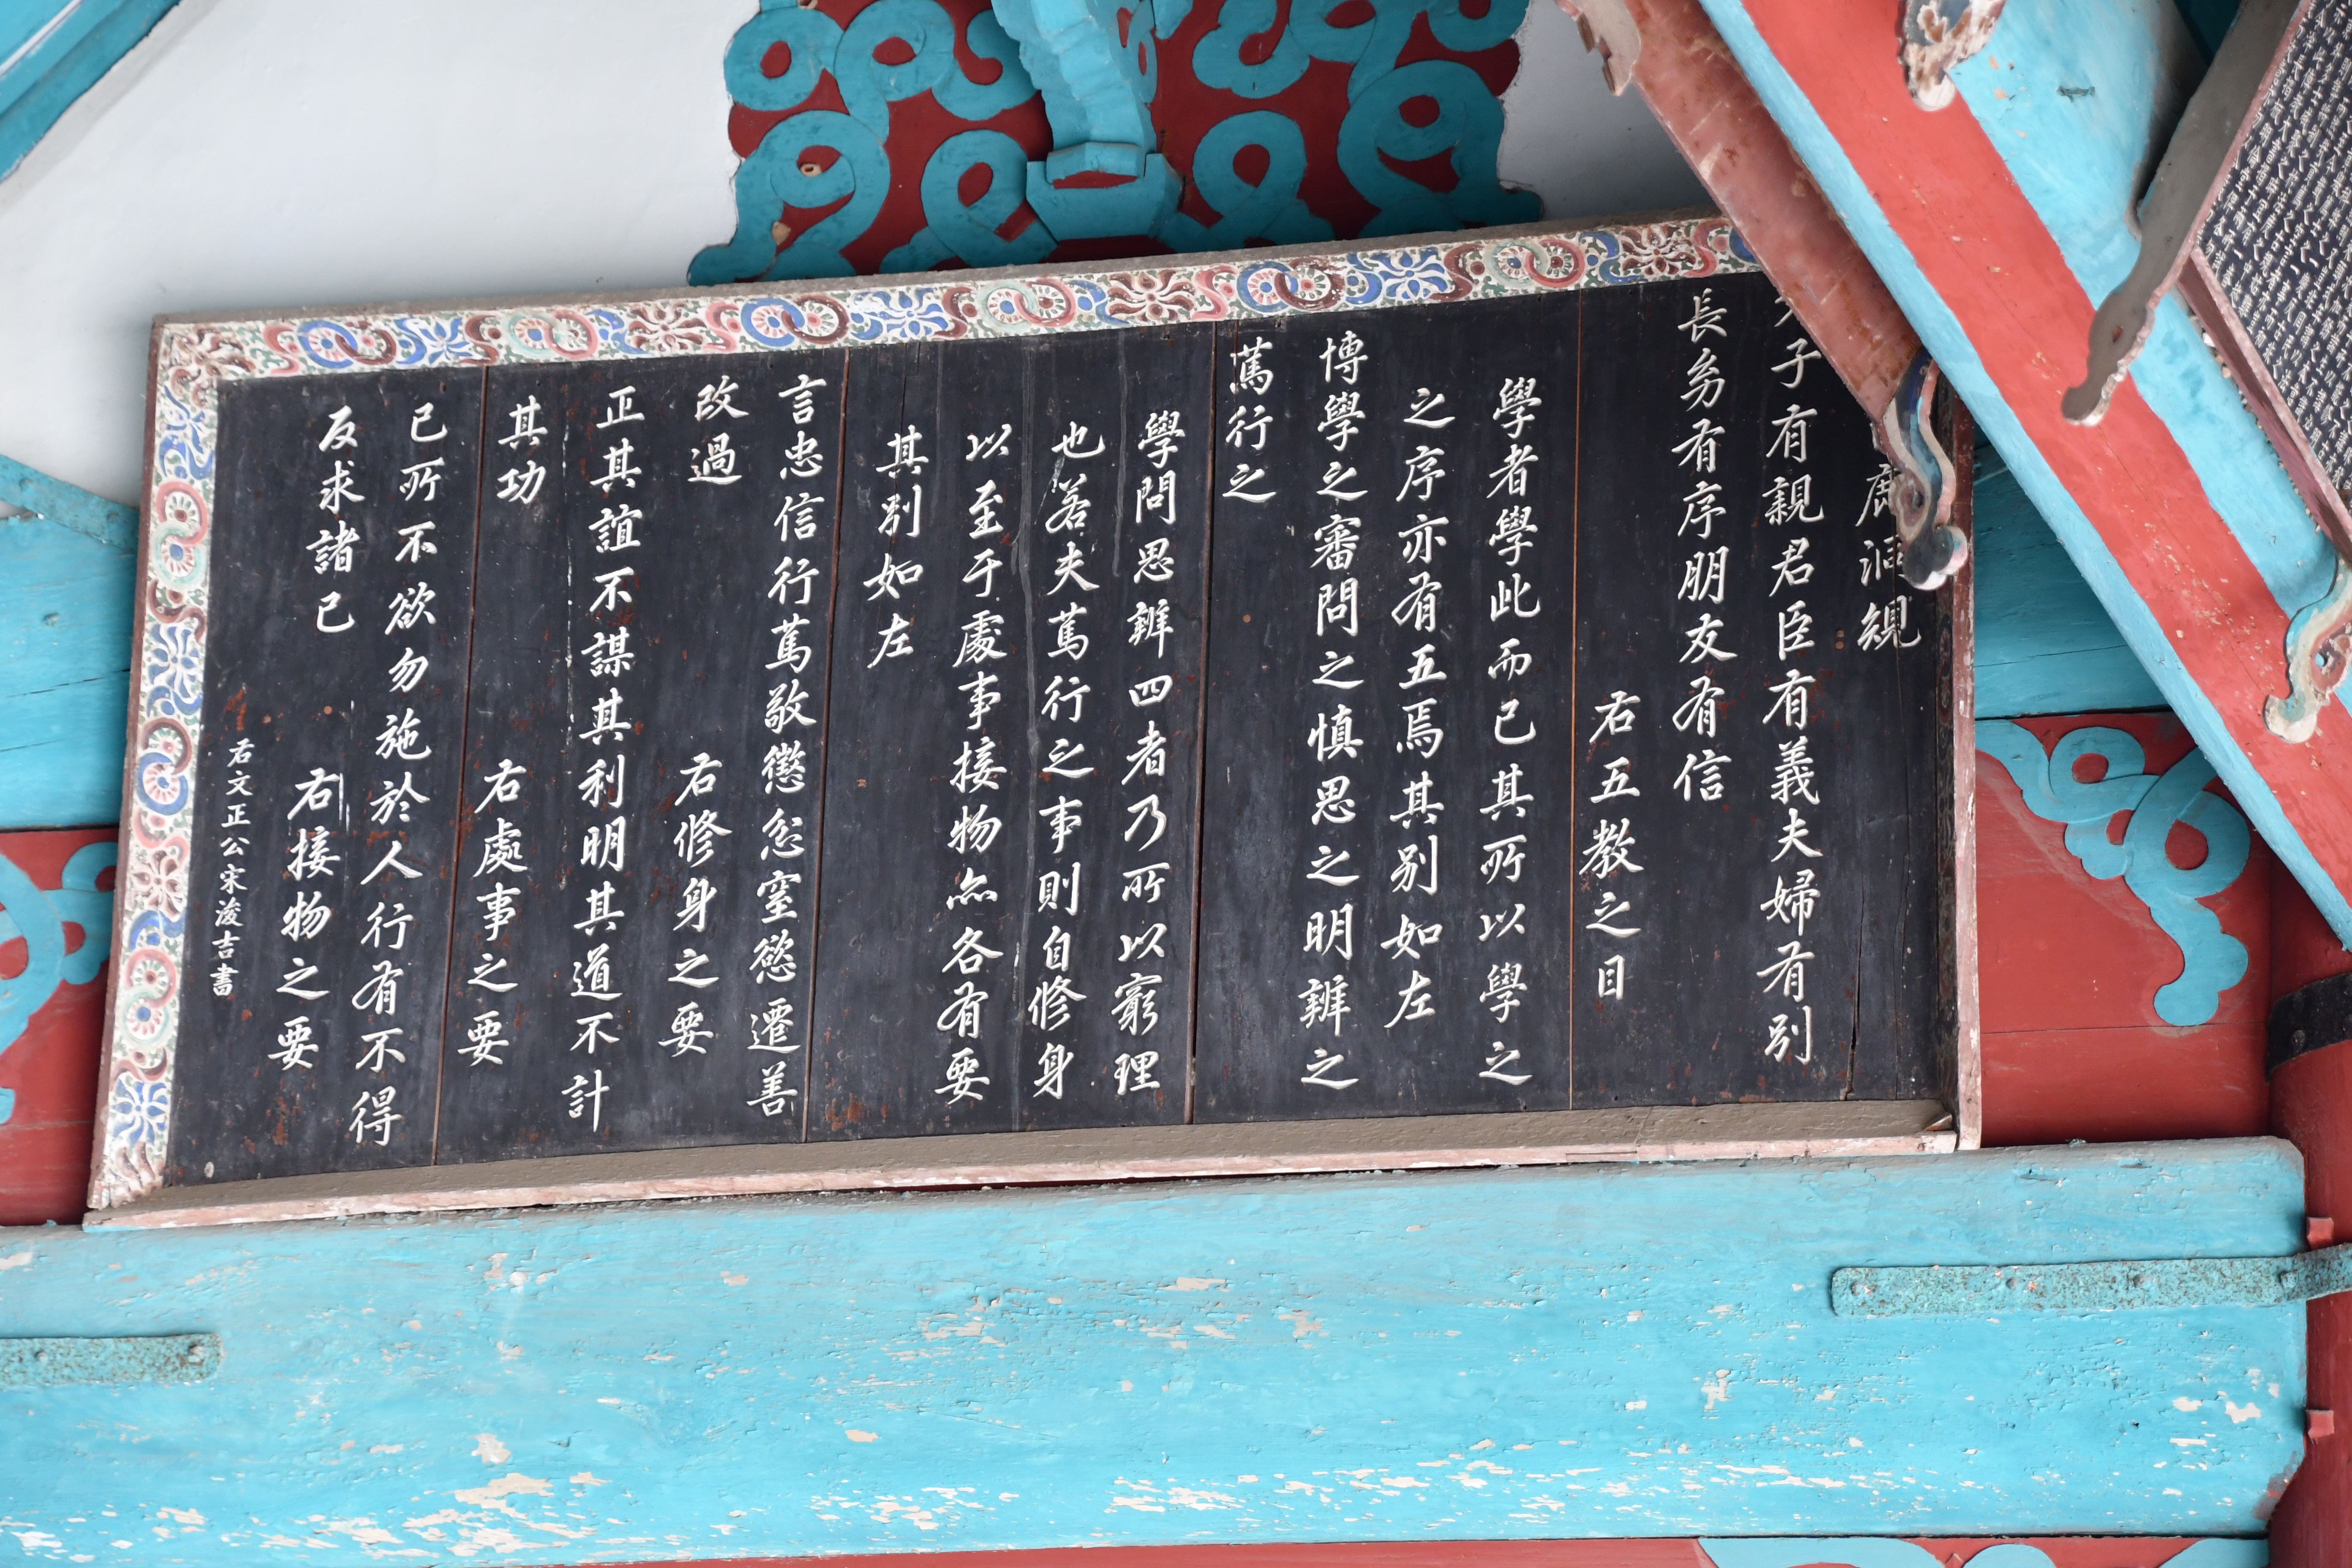 鹿洞規
父子有親君臣有義夫婦有别
長幼有序朋友有信
右五教之目
學者學此而已其所以學之
之序亦有五焉其别如左
博學之審問之慎思之明辨之
篤行之
學問思辨四者乃所以窮理
也若夫篤行之事則自修身
以至于處事接物亦各有要
其别如左
言忠信行篤敬懲忿窒慾遷善
改過 右修身之要
正其誼不謀其利明其道不計
其功 右處事之要
己所不欲勿施於人行有不得
反求諸己 右接物之要
右文正公宋浚吉書